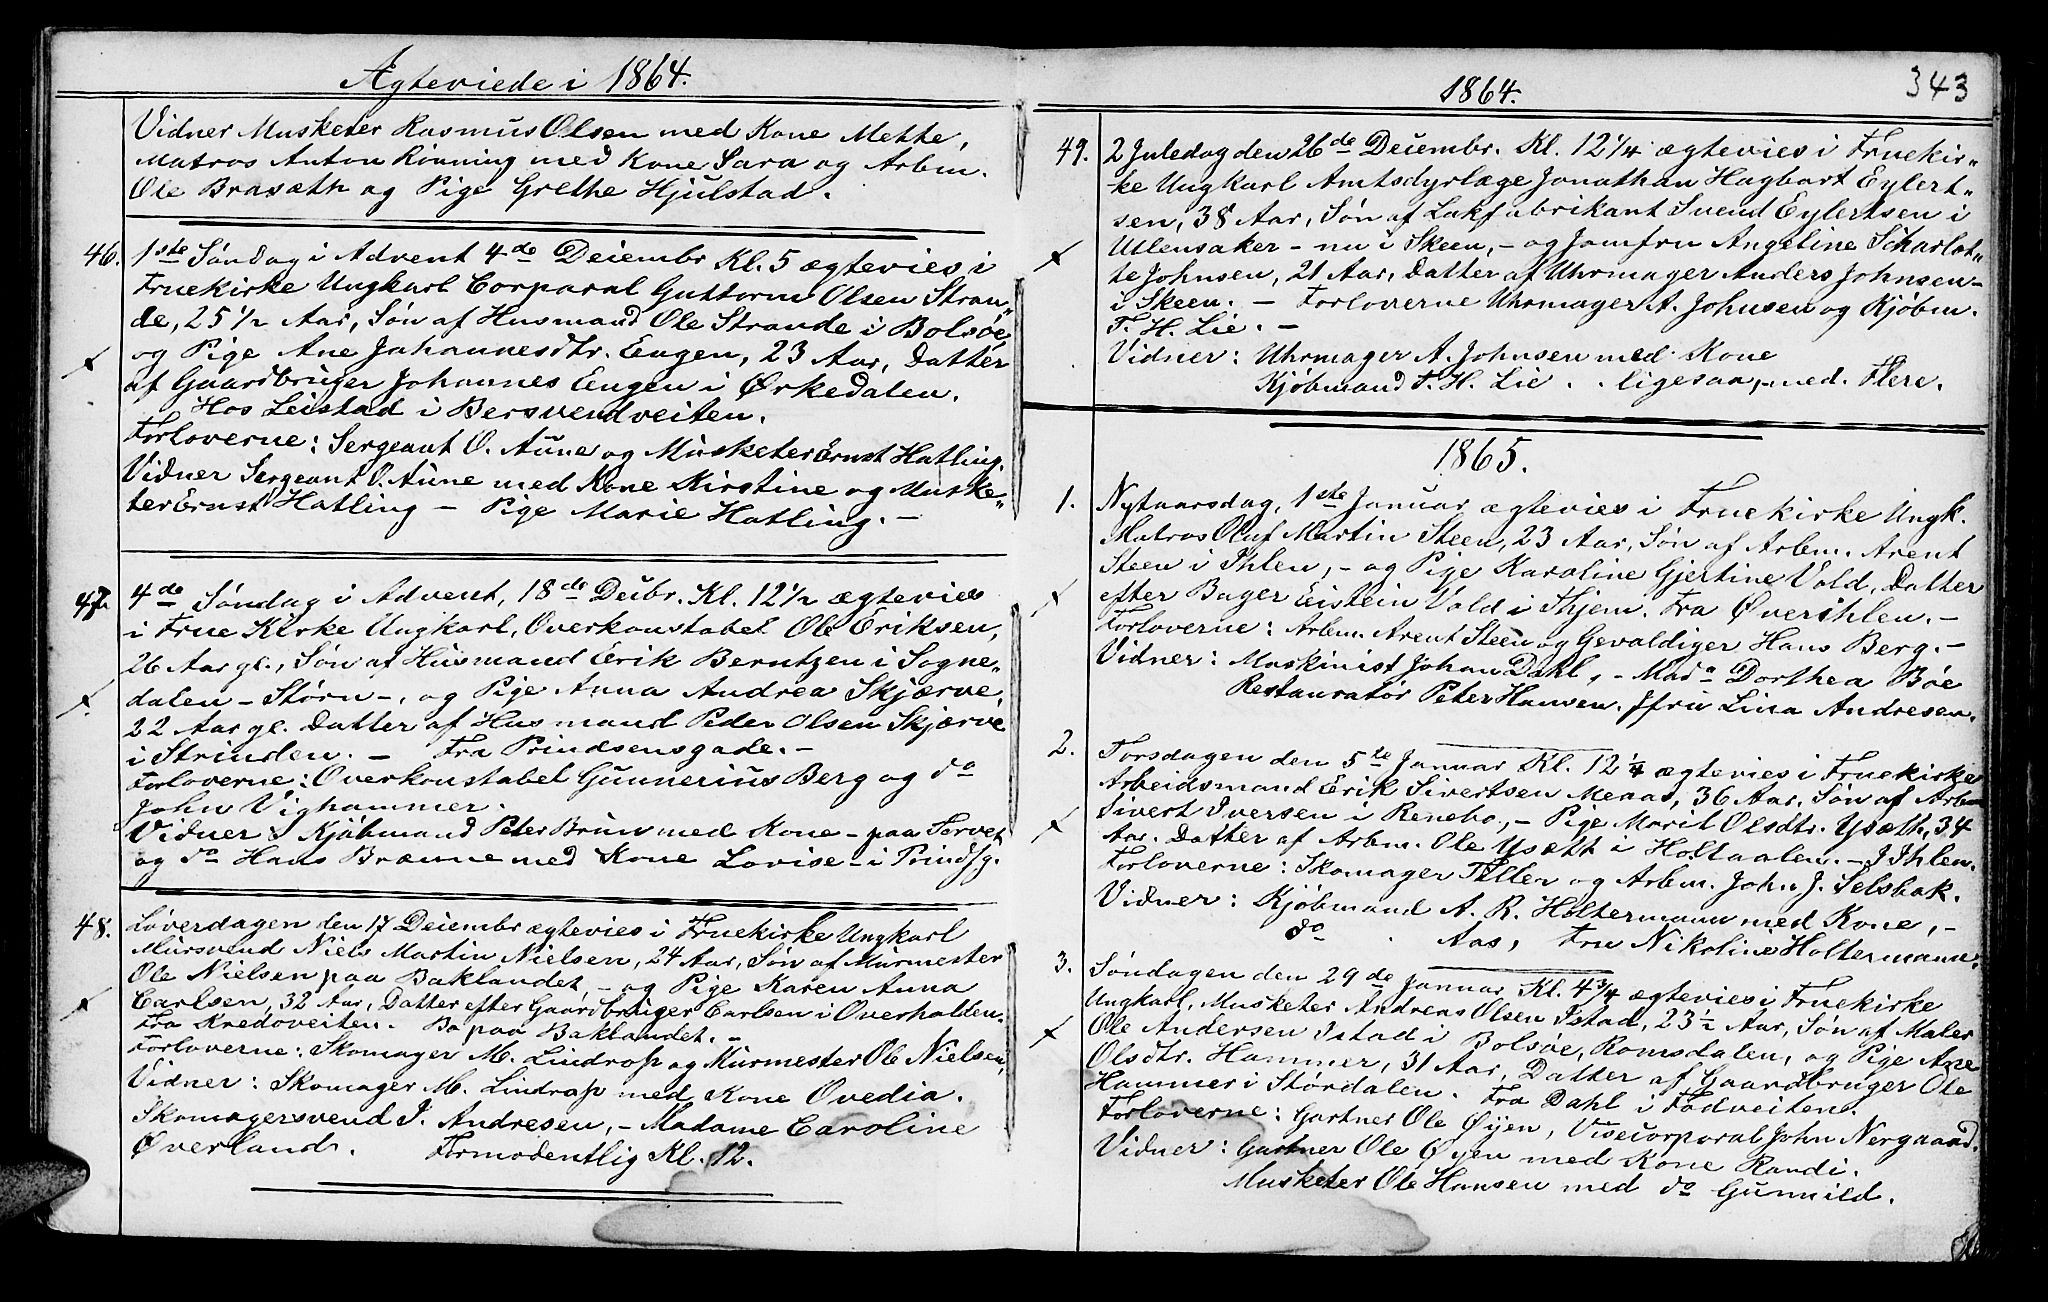 Ægteviede i 1864.
Vidner Musketer Rasmus Olsen med Kone Mette,
Matros Anton Rönning med Kone Sara og Arbm.
Ole Brasæth og Pige Grethe Hjulstad.
46. 1ste Söndag i Advent 4de Deiembr Kl. 5 ægtevies i
Fruekirke Ungkarl Corporal Guttorm Olsen Stran„
de, 25 1/2 Aar, Sön af Husmand Ole Strande i Bolsöe
og Pige Ane Johannesdtr. Eugen, 23 Aar, Datter
af Gaardbruger Johannes Eugen i Ørkedalen.
Hos Leistad i Bersvendveiten.
Forloverne: Sergeant O. Aune og Musketer Ernst Hatling.
Vidner Sergeant O. Aune med Kone Kirstine og Muske„
ter Ernst Hatling – Pige Marie Hatling. –
47. 4de Söndag i Advent, 18de Deibr. Kl. 12 1/2 ægtevies
i Frue Kirke Ungkarl, Overkonstabel Ole Eriksen,
26 Aar gl., Sön af Husmand Erik Berntzen i Sogne„
dalen – Störn –, og Pige Anna Andrea Skjærve,
22 Aar gl. Datter af Husmand Peder Olsen Skjærve
i Strinden. – Fra Prindsensgade. –
Forloverne: Overkonstabel Gunnerius Berg og do
John Vighammer.
Vidner: Kjöbmand Peter Brun med Kone – paa Torvet
og do Hans Brænne med Kone Lovise – i Prindsg.
48. Löverdagen den 17 Deiembr ægtevies i Fruekirke Ungkarl
Mursvend Niels Martin Nielsen, 24 Aar, Sön af Murmester
Ole Nielsen paa Baklandet, – og Pige Karen Anna
Carlsen, 32 Aar, Datter efter Gaardbruger Carlsen i Overhalden.
Fra Kredoveiten. Bo paa Baklandet. –
Forloverne: Skomager M. Lindrop og Murmester Ole Nielsen,
Vidner: Skomager M. Lindrop med Kone Ovedia.
Skomagersvend J. Andresen, – Madame Caroline
Øverland. Formodentlig Kl. 12.
1864. 343
49. 2 Juledag den 26de Deiembr. Kl. 12 1/4 ægtevies i Fruekir„
ke Ungkarl Amtsdyrlæge Jonathan Hagbart Eylert„
sen, 38 Aar, Sön af Lakfabrikant Svend Eylertsen i
Ullensaker – nu i Skeen, – og Jomfru Angeline Scharlot„
te Johnsen, 21 Aar, Datter af Uhrmager Anders Johnsen –
i Skeen. – Forloverne Uhrmager A. Johnsen og Kjöbm.
T. H. Lie. –
Vidner: Uhrmager A. Johnsen med Kone
Kjöbmand T. H. Lie . . ligesaa, – med Flere.
1865.
1. Nytaarsdag, 1ste Januar ægtevies i Fruekirke Ungk.
Matros Oluf Martin Steen, 23 Aar, Sön af Arbm. Arent
Steen i Ihlen, – og Pige Karoline Gjertine Vold, Datter
efter Bager Eistein Vold i Thjem. Fra Øverihlen. –
Forloverne: Arbm. Arent Steen og Gevaldiger Hans Berg. –
Vidner: Maskinist Johan Dahl, – Mada Dorthea Böe
Restauratör Peter Hansen, Jfru Lina Andresen.
2. Torsdagen den 5te Januar Kl. 12 1/4 ægtevies i Fruekirke
Arbeidsmand Erik Sivertsen Menas, 36 Aar. Sön af Arbm
Sivert Iversen i Renebo, – Pige Marit Olsdtr. Ysæth, 34
Aar. Datter af Arbm. Ole Ysætt i Holtaalen. – I Ihlen.
Forloverne: Skomager Tiller og Arbm. John J. Selsbak.
Vidner: Kjöbmand A. R. Holtermann med Kone, –
do . Aas, Fru Nikoline Holtermann.
3. Söndagen den 29de Januar Kl. 4 3/4 ægtevies i Fruekirke
Ungkarl, Musketer Andreas Olsen Istad, 23 1/2 Aar, Sön af Maler
Ole Andersen Istad i Bolsöe, Romsdalen, og Pige Ane
Olsdtr. Hammer, 31 Aar, Datter af Gaardbruger Ole
Hammer i Stördalen. Fra Dahl i Fodveiten.
Forloverne: Gartner Ole Øyen, Visecorporal John Nergaard.
Vidner: Gartner Ole Øyen med Kone Randi.
Musketer Ole Hansen med do Gunnild.